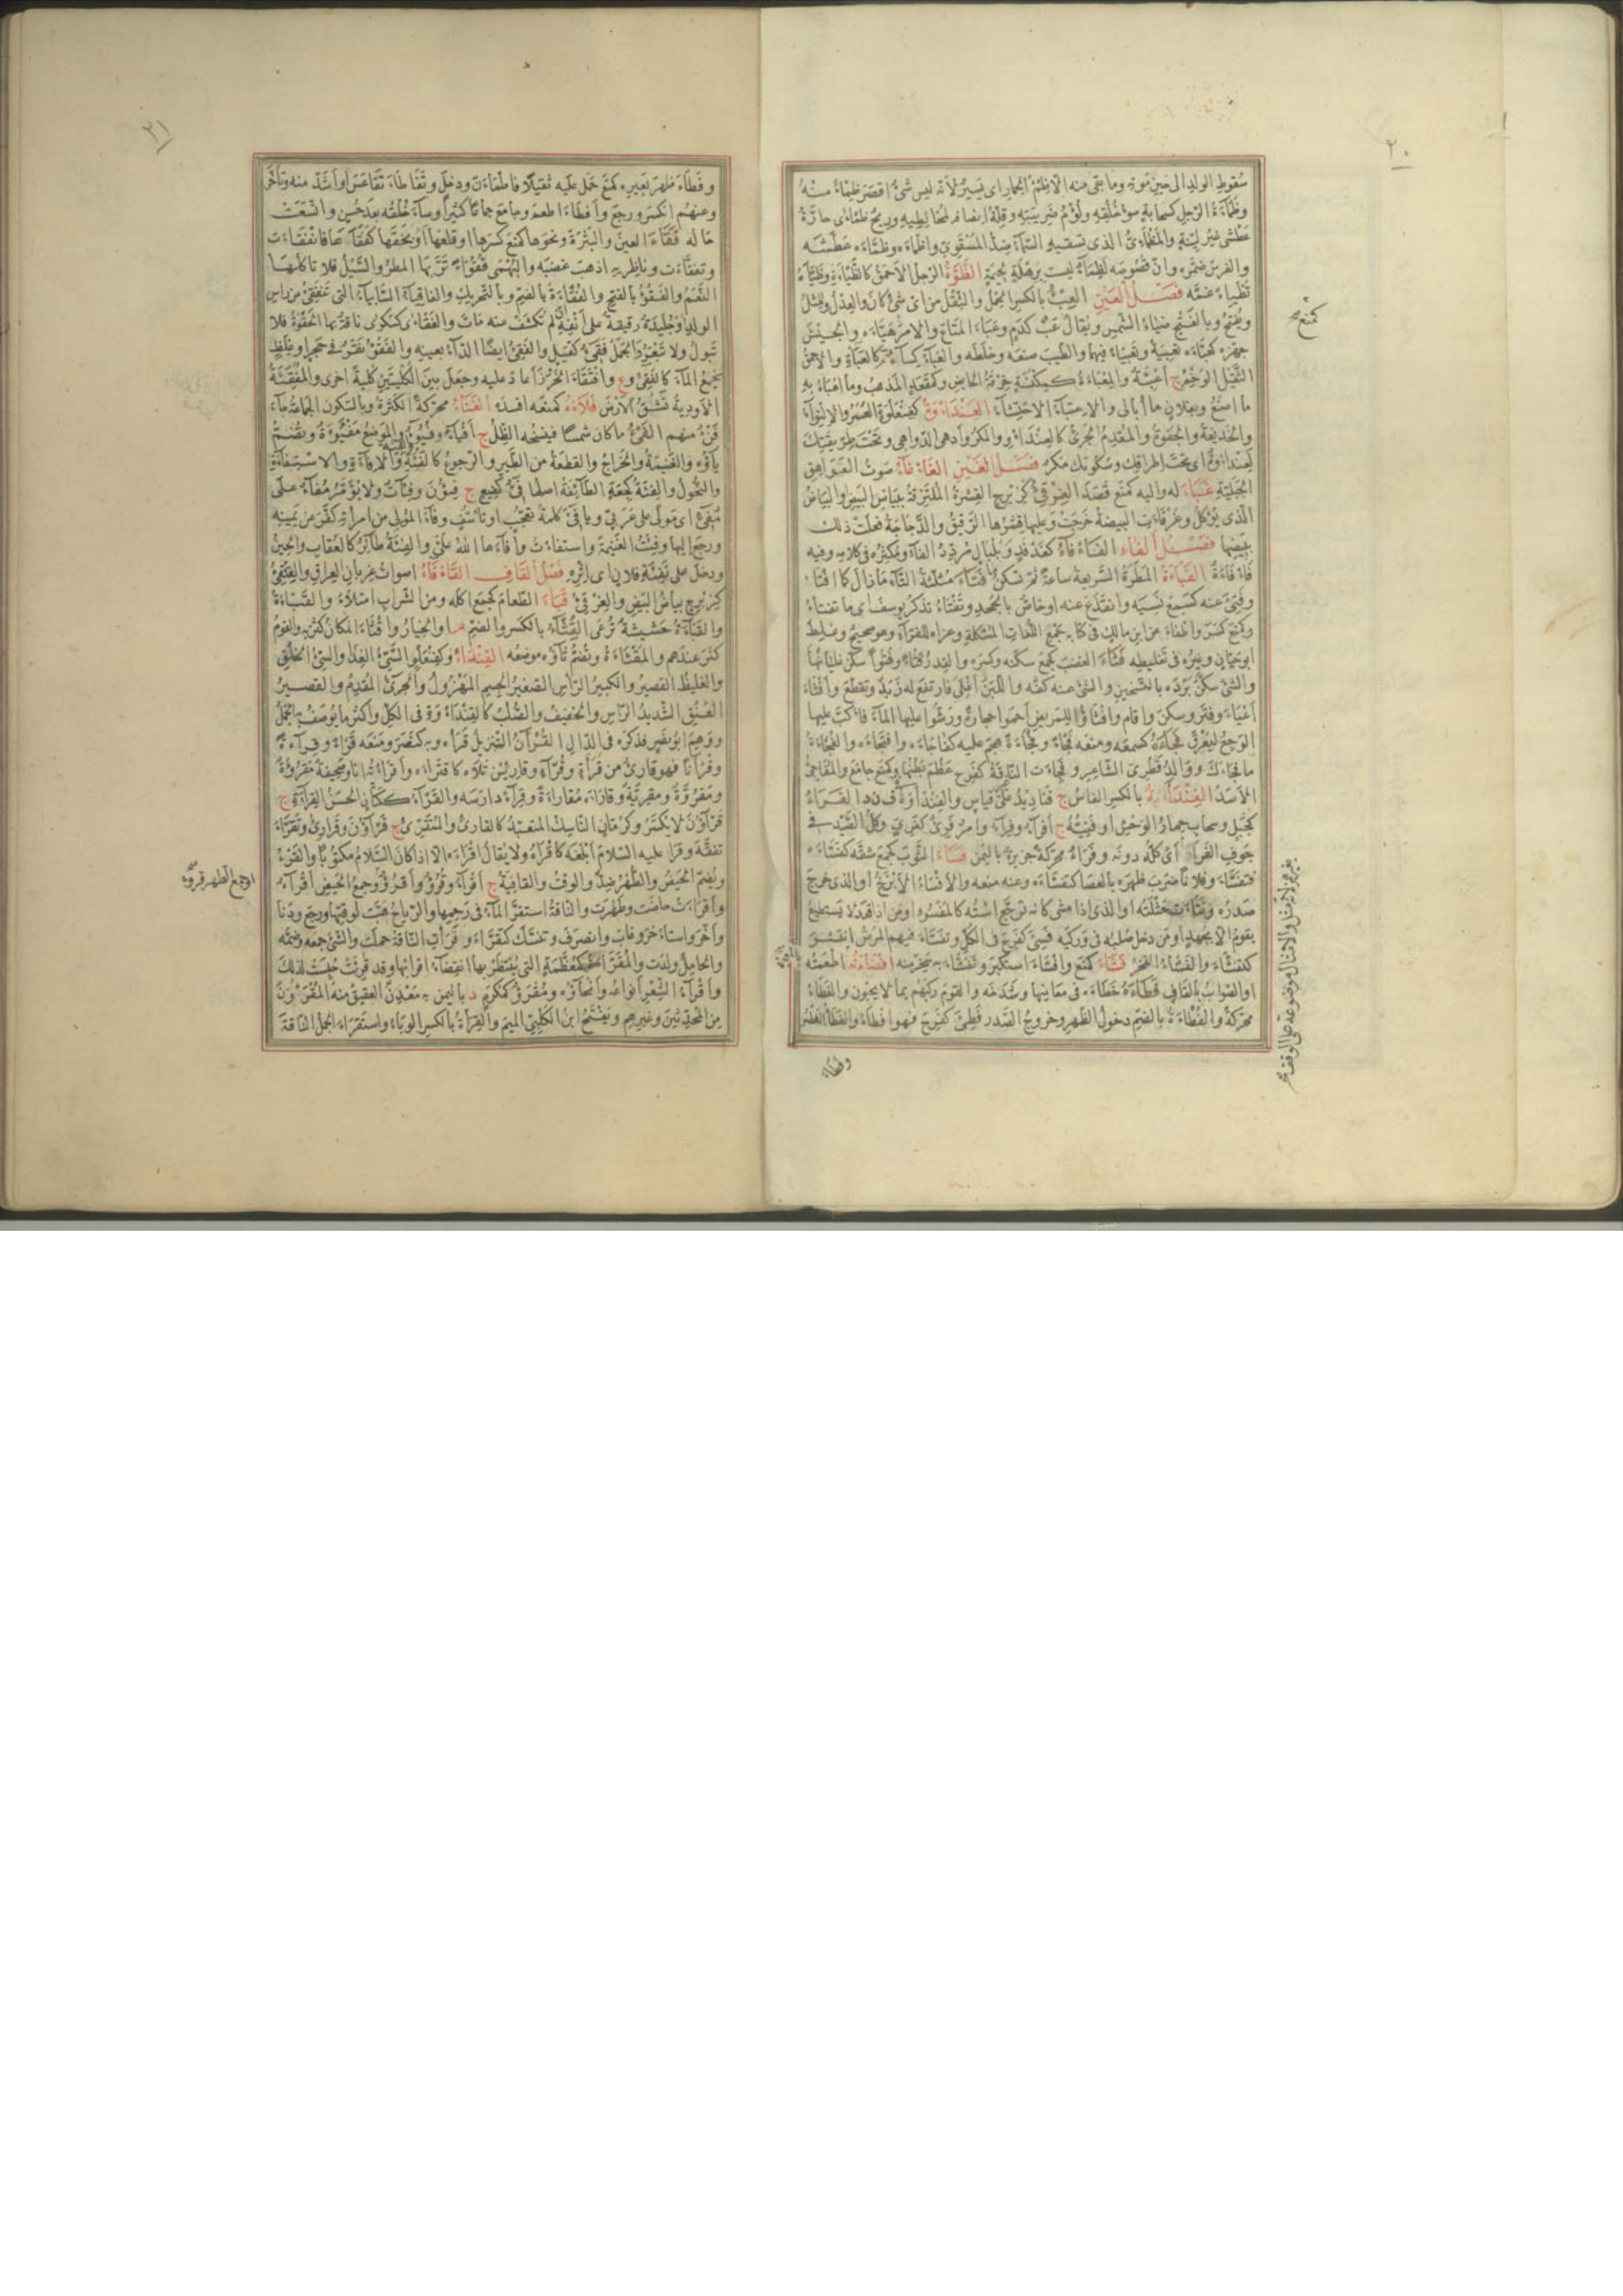 ٢٠
سقوط الولد الى حين موته وما بقى منه الا ظمء الحمار اى يسير لانه ليس شئ اقصر ظمأ منه
وظماءة الرجل كسحابة سوء خلقه ولؤم ضريبته وقلة انصافه لمخالطيه وريح ظمأى حارة
عطشى غير لينة والمظمئى الذى تسقيه السماء ضد المسقوى واظمأه وظمأه عطشه
والفرس ضمره وان فصوصه لظماء ليست برهلة لحيمة الظوءة الرجل الاحمق كالظياءة وظيأه
تظيأ غمه فصل العين العبء بالكسر الحمل والثقل من اى شئ كان والعدل والمثل
ويفتح وبالفتح ضياء الشمس ويقال عب كدم وعبأ المتاع والامر هيأه والجيش
جهزه كعبأه تعبئة وتعبيئا فيهما والطيب صنعه وخلطه والعباء كساء م كالعباءة والاحمق
الثقيل الوخم ج اعبئة والمعبأة كمكنسة خرقة الحائض وكمقعد المذهب وما اعبأ به
ما اصنع وبفلان ما ابالى والاعتباء الاحتشاء العندأوة كفنعلوة العسر والالتواء
والخديعة والجفوة والمقدم الجرئ كالعندأو والمكر وادهى الدواهى وتحت طريقتك
لعندأوة اى تحت اطراقك وسكوتك مكر فصل الغين الغأغاء صوت العواهق
الجبلية غبأ له واليه كمنع قصد الغرقئ كزبرج القشرة الملتزقة ببياض البيض والبياض
الذى يؤكل وغرقأت البيضة خرجت وعليها قشرها الرقيق والدجاجة فعلت ذلك
ببيضها فصل الفاء الفأفاء كفدفد وبلبال مردد الفاء ومكثره فى كلامه وفيه
فأفأة الفبأة المطرة السريعة ساعة ثم تسكن ما فتأ مثلثة التاء ما زال كما افتأ
وفتئ عنه كسمع نسيه وانقدع عنه او خاص بالجحد وتفتأ تذكر يوسف اى ما تفتأ
وكمنع كسر واطفأ عن ابن مالك فى كتابه جمع اللغات المشكلة وعزاه للفراء وهو صحيح وغلط
ابو حيان وغيره فى تغليطه فثأ الغضب كجمع سكنه وكسره والقدر فثأ وفثوءا سكن غليانها
والشئ سكن برده بالتسخين والشئ عنه كفه واللبن اغلى فارتفع له زبد وتقطع وافثأ
اعيا وفتر وسكن واقام وافثأوا للمريض احموا حجارة ورشوا عليها الماء فاكب عليها
الوجع ليعرق فجأه كسمعه ومنعه فجأ وفجاءة هجم عليه كفاجأه وافتجأه والفجاءة
ما فاجأك ووالد قطرى الشاعر وفجئت الناقة كفرح عظم بطنها وكمنع جامع والمفاجئ
الاسد الفندأية بالكسر الفاس ج فناديد على غير قياس والفندأوة ف ن د ا الفرأ
كجبل وسحاب حمار الوحش او فتيه ج افراء وفراء وامر فرئ كفرى وكل الصيد فى
جوف الفرا اى كله دونه وفرأ محركة جزيرة باليمن فسأ الثوب كجمع شقه كفسأه
فتفسأ وفلانا ضرب ظهره بالعصا كتفسأه وعنه منعه والافسأ الابزخ او الذى خرج
صدره ونتأت خثلته او الذى اذا مشى كانه ترجع استه كالمفسوء او من اذا قعد لا يستطيع
يقوم الا بجهد او من دخل صلبه فى وركيه فسئ كفرح فى الكل وتفسأ فيهم المرض انتشر
كتفشأ والفشأ الفخر فشأ كمنع وافشأ استكبر وتفشأ به سخر منه افضأته اطعمته
او الصواب بالقاف فطأه خطأه فى معانيها وشدخه والقوم ركبهم بما لا يحبون والفطأ
محركة والفطأة بالضم دخول الظهر وخروج الصدر فطئ كفرح فهو افطأ والفطأ الفطس
وفطأ
كمنع صح
٢١
وفطأ ظهر بعيره كمنع حمل عليه ثقيلا فاطمأن ودخل وتفاطأ تقاعس او اشد منه وتاخر
وعنهم انكسر ورجع وافطأ اطعم وجامع جماعا كثيرا وساء خلقه بعد حسن واتسعت
حاله فقأ العين والبثرة ونحوهما كمنع كسرها او قلعها او بخقها كفقأها فانفقأت
وتفقأت وناظريه اذهب غضبه والبهمى فقوءا تربها المطر والسيل فلا تاكلها
النعم والفقء بالفتح والفقأة بالضم وبالتحريك والفاقياء السابياء التى تنفقئ عن راس
الولد او جليدة رقيقة على انفه ان لم تكشف عنه مات والفقأى كسكرى ناقة بها الحقوة فلا
تبول ولا تبعر والجمل فقئ كقتيل والفقئ ايضا الداء بعينه والفقء نقر فى حجر او غلظ
يجمع الماء كالفقئ وع وافتقأ الخرز اعاد عليه وجعل بين الكلبتين كلبة اخرى والمفقئة
الاودية تشق الارض فلأه كمنعه افسده الفنأ محركة الكثرة وبالسكون الجماعة جاء
فنء منهم الفئ ما كان شمسا فينسخه الظل ج افياء وفيوء والموضع مفيؤة وتضم
ياؤه والغنيمة والخراج والقطعة من الطير والرجوع كالفيئة والافاءة والاستفاءة
والتحول والفئة كجعة الطائفة اصلها فئ كفيع ج فئون وفئات ولا يؤمر مفاء على
مفئ اى مولى على عربى ويا فئ كلمة تعجب او تاسف وفاء المولى من امراته كفر عن يمينه
ورجع اليها وفئت الغنيمة واستفأت وافاءها الله على والفيئة طائر كالعقاب والحين
ودخل على تفيئة فلان اى اثره فصل القاف القأقاء اصوات غربان العراق والقئقئ
كزبرج بياض البيض والغرقئ قبأ الطعام كجمع اكله ومن الشراب امتلأ والقبأة
والقباءة حشيشة ترعى القثاء بالكسر والضم م او الخيار واقثأ المكان كثر به والقوم
كثر عندهم والمقثأة وتضم ثاؤه موضعه القندأو كفنعلو السيئ الغذاء والسيئ الخلق
والغليظ القصير والكبير الراس الصغير الجسم المهزول والجرئ المقدم والقصير
العنق الشديد الراس والخفيف والصلب كالقندأوة فى الكل واكثر ما يوصف به الجمل
ووهم ابو نصر فذكره فى الدال القرآن التنزيل قرأه وبه كنصره ومنعه قرأ وقراءة
وقرآنا فهو قارئ من قرأة وقراء وقارئين تلاه كاقترأه واقرأته انا وصحيفة مقروءة
ومقروة ومقرية وقارأه مقارأة وقراء دارسه والقراء ككتان الحسن القراءة ج
قراؤن لا يكسر وكرمان الناسك المتعبد كالقارئ والمتقرئ ج قراؤن وقرارئ وتقرأ
تفقه وقرأ عليه السلام ابلغه كاقرأه ولا يقال اقرأه الا اذا كان السلام مكتوبا والقرء
ويضم الحيض والطهر ضد والوقت والقافية ج اقراء وقروء واقرؤ وجمع الحيض اقراء
واقرأت حاضت وطهرت والناقة استقر الماء فى رحمها والرياح هبت لوقتها ورجع ودنا
واخر واستاخر وغاب وانصرف وتنسك كتقرأ وقرأت الناقة حملت والشئ جمعه وضمه
والحامل ولدت والمقرأة كمعظمة التى ينتظر بها انقضاء اقرائها وقد قرئت حبست لذلك
واقراء الشعر انواعه وانحاؤه ومقرأ كمكرم د باليمن به معدن العقيق منه المقرؤن
من المحدثين وغيرهم ويفتح ابن الكلبى الميم والقرأة بالكسر الوباء واستقرأ الجمل الناقة
او جمع الطهر قروء